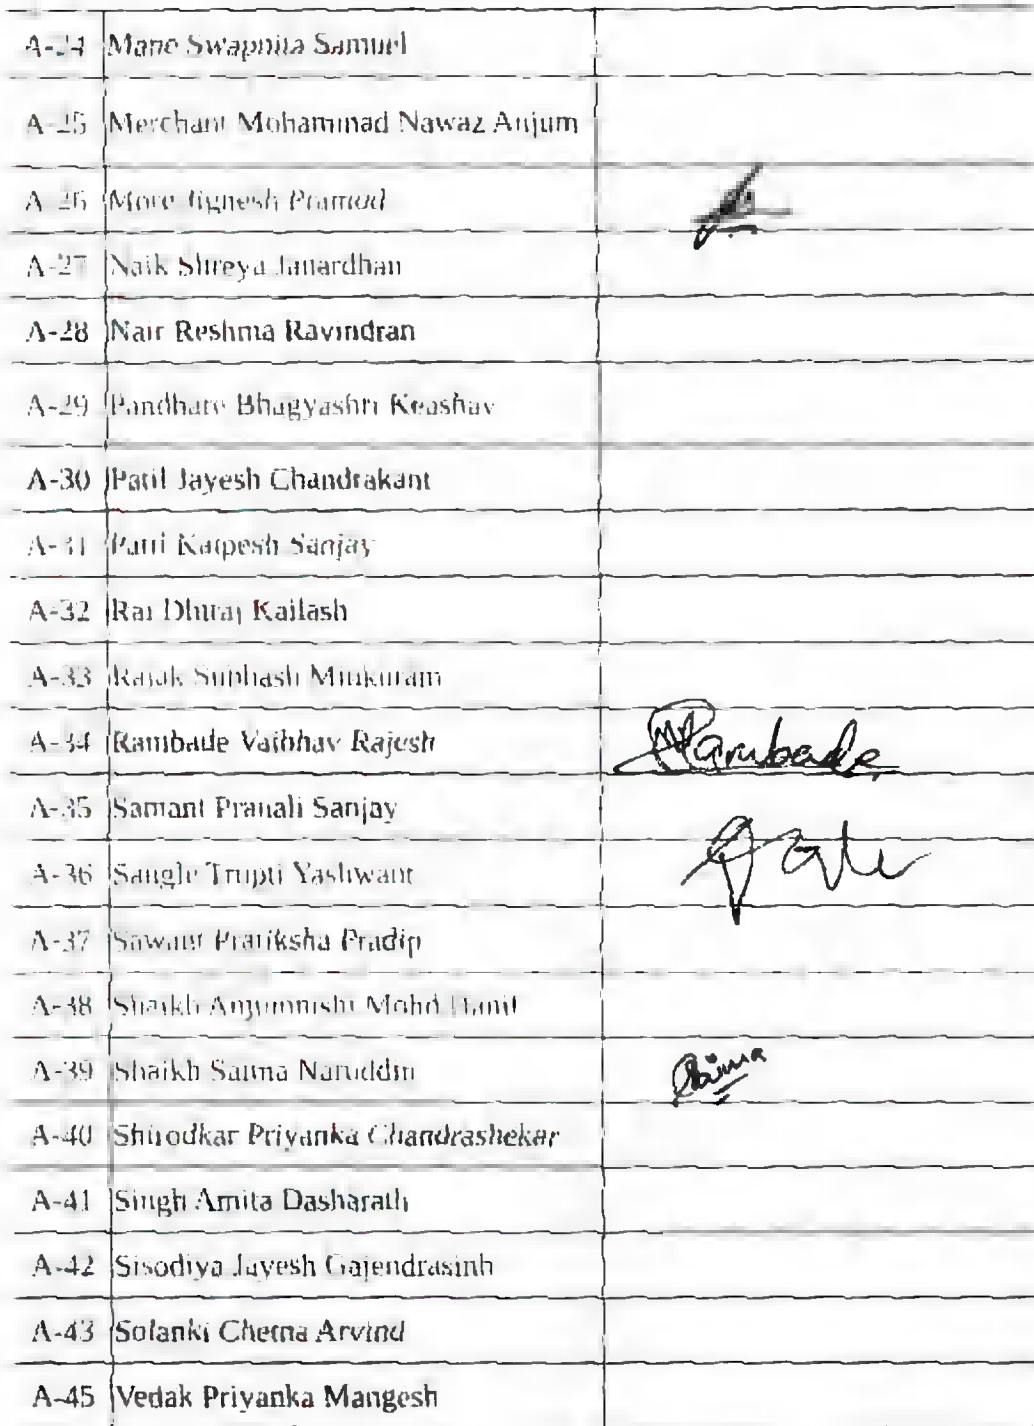 A-24 Mane Swapnita Samuel
A-25 Merchant Mohammad Nawaz Anjum
A-26 More Jignesh Pramod
A-27 Naik Shreya Janardhan
A-28 Nair Reshma Ravindran
A-29 Pandhare Bhagyashri Keashav
A-30 Patil Jayesh Chandrakant
A-31 Patil Kalpesh Sanjay
A-32 Rai Dhiraj Kailash
A-33 Rajak Subhash
A-34 Rambade Vaibhav Rajesh Rambade
A-35 Samant Pranali Sanjay
A-36 Sangle Trupti Yashwant
A-37 Sawant Pratiksha Pradip
A-38 Shaikh Mohd Hanif
A-39 Shaikh Saima
A-40 Shirodkar Priyanka Chandrashekar
A-41 Singh Amita Dasharath
A-42 Sisodiya Jayesh Gajendrasinh
A-43 Solanki Chetna Arvind
A-45 Vedak Priyanka Mangesh